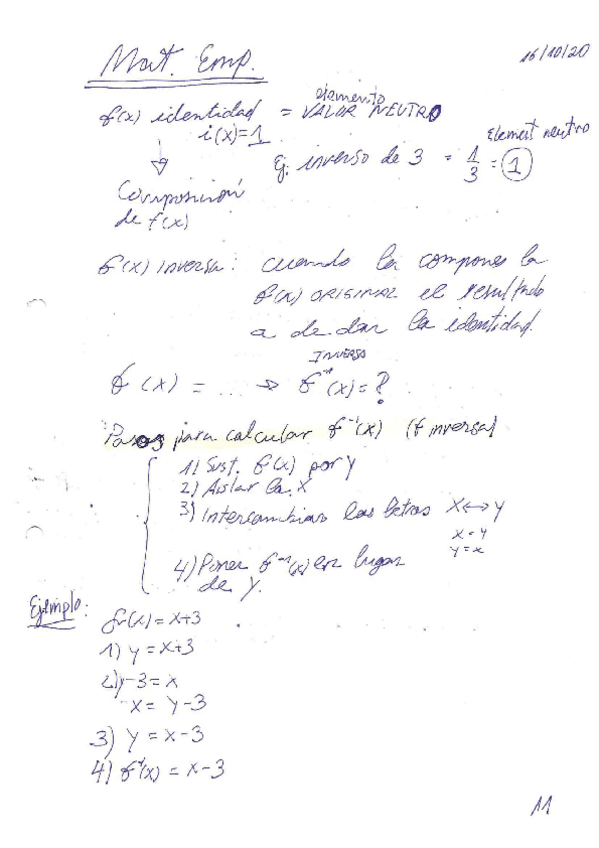 Mat. Emp.
16/10/20
elemento
f(x) identidad = VALOR NEUTRO
i(x)=1
Element neutro
Ej. inverso de 3 = 1/3 = 1
Composición
de f(x)
f(x) inversa: cuando la compones la
f(x) ORIGINAL el resultado
a de dar la identidad.
INVERSA
f(x) = ... => f⁻¹(x) = ?
Pasos para calcular f⁻¹(x) (f inversa)
1) Sust. f(x) por y
2) Aislar la x
3) Intercambiar las letras x<->y
x=y
y=x
4) Poner f⁻¹(x) en lugar
de y.
Ejemplo:
f(x) = x+3
1) y = x+3
2) y-3 = x
x = y-3
3) y = x-3
4) f⁻¹(x) = x-3
11